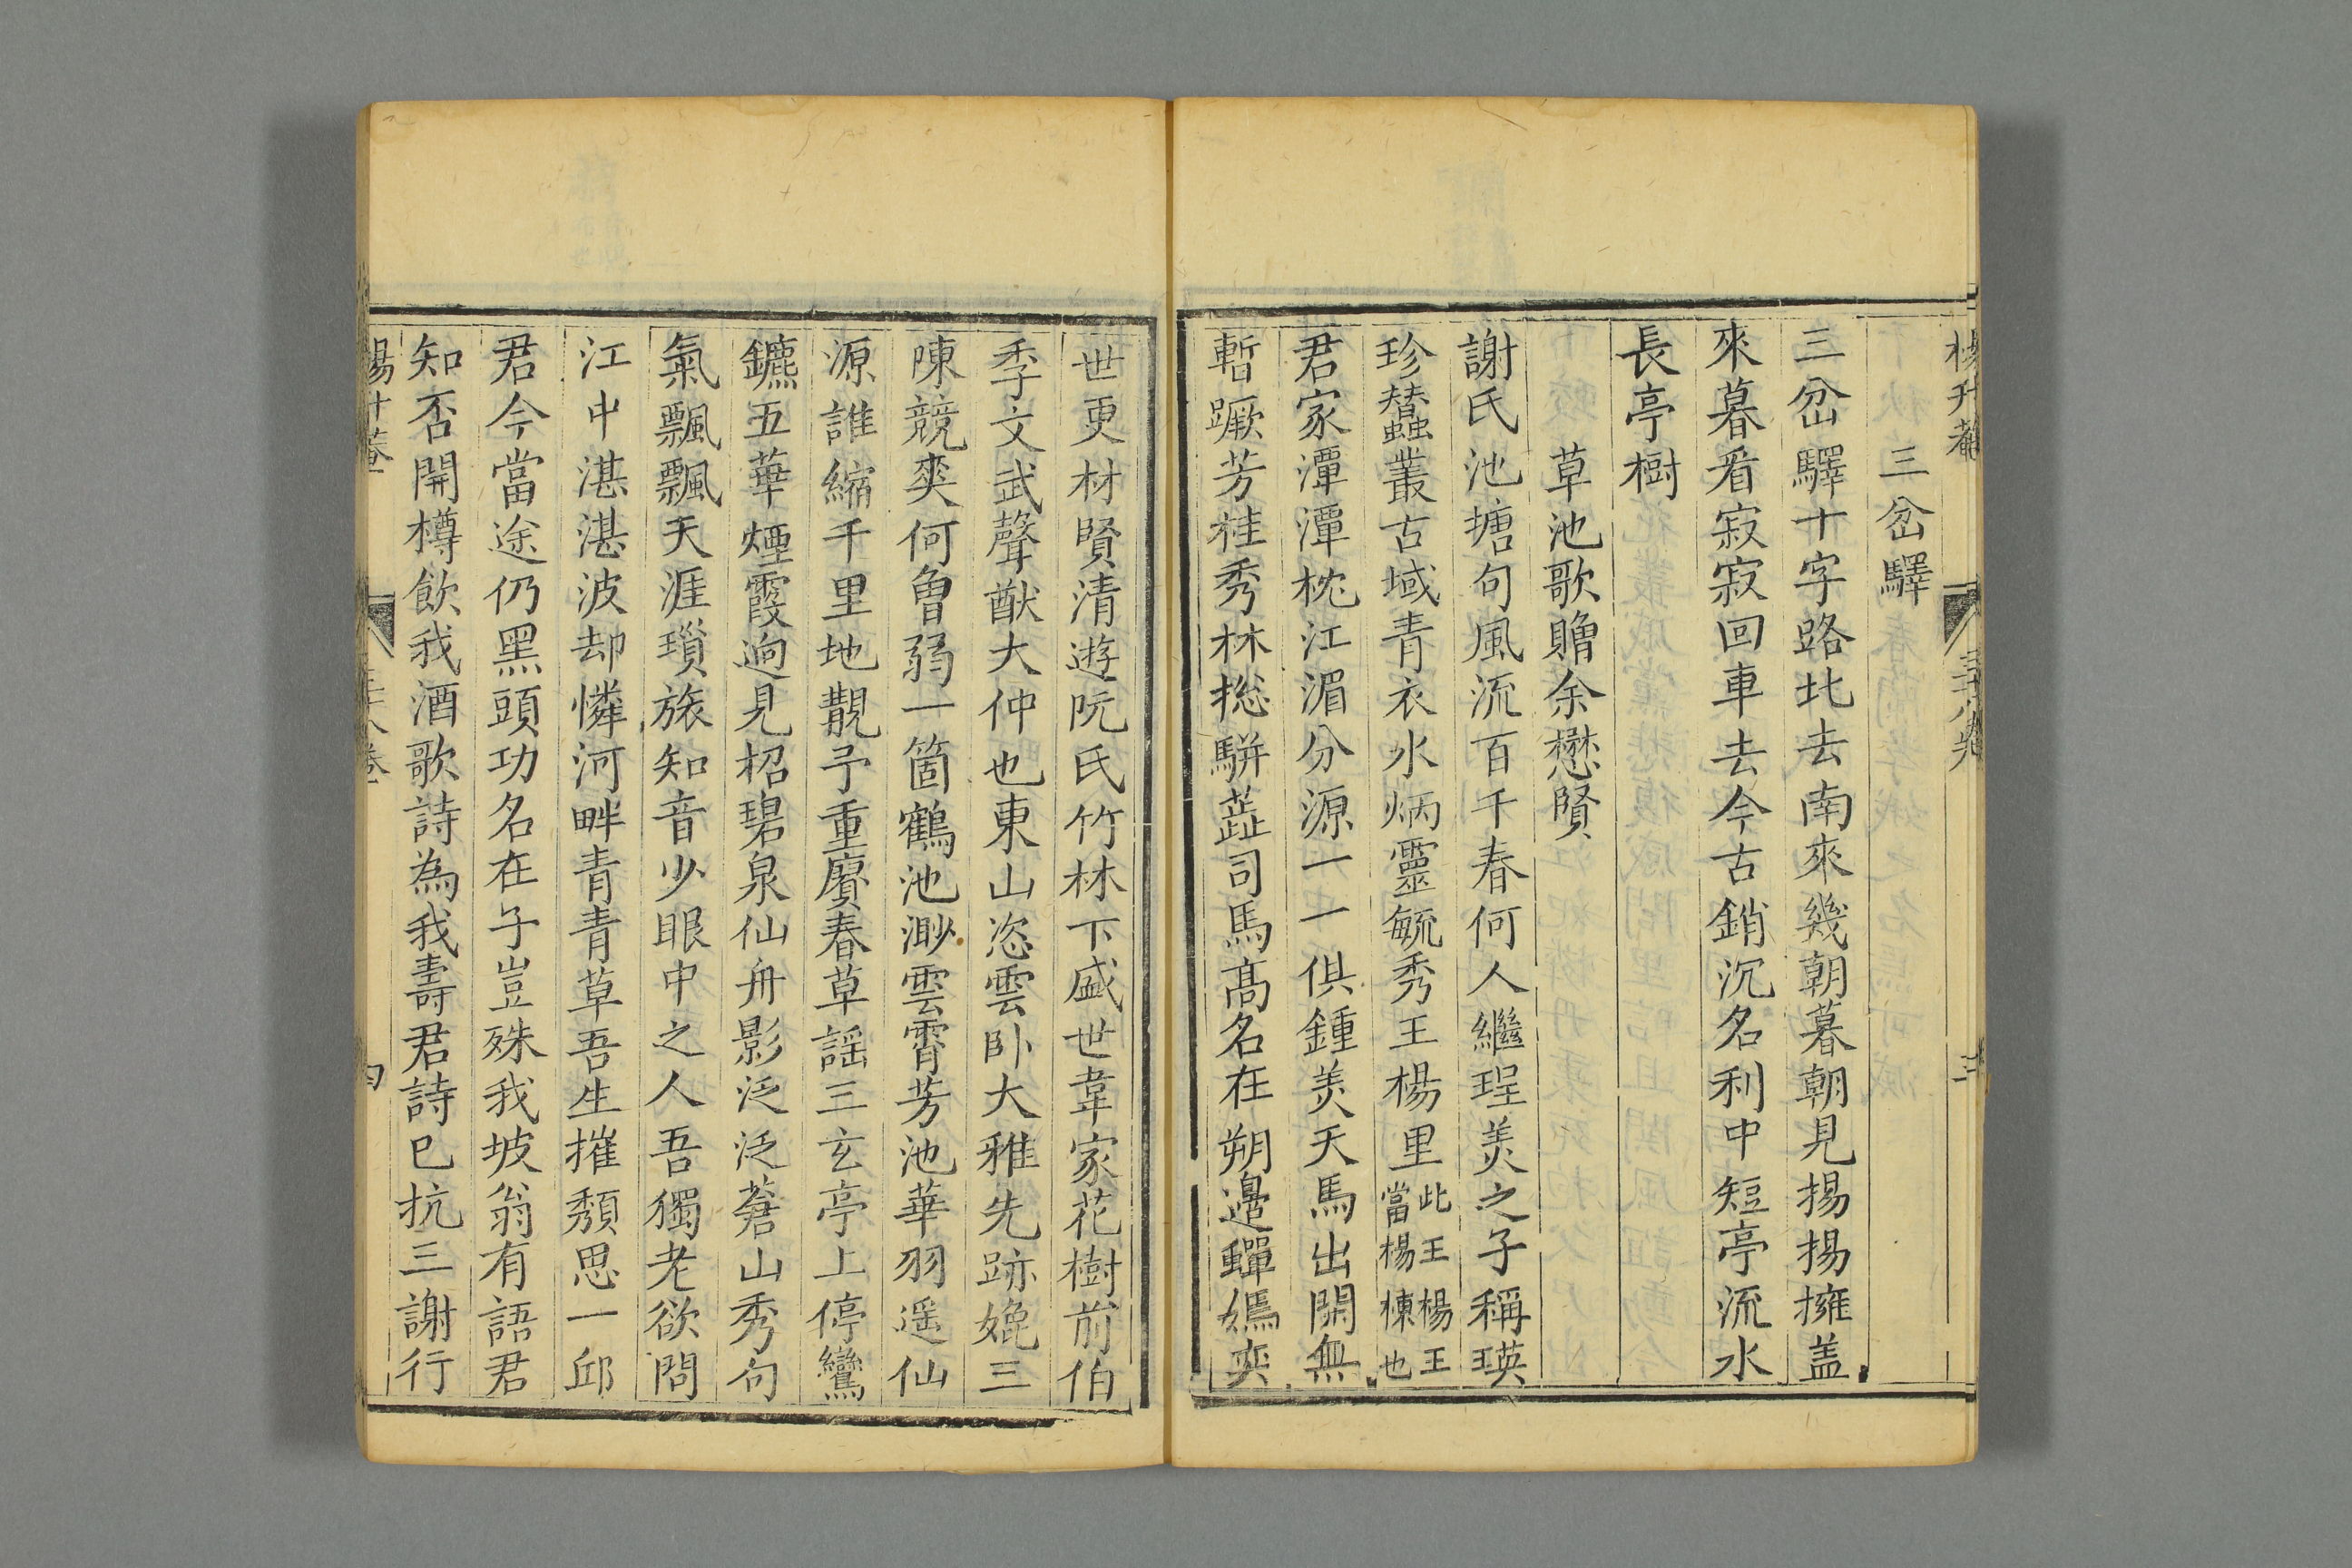 楊升菴
三十八卷
三岔驛
三岔驛十字路北去南來幾朝暮朝見揚揚擁盖
來暮看寂寂回車去今古銷沉名利中短亭流水
長亭樹
草池歌贈余懋賢
謝氏池塘句風流百千春何人繼珵美之子稱瑛
珍蠶叢古域青衣水炳靈毓秀王楊里此王楊王當楊棟也
君家潭潭枕江湄分源一一俱鍾美天馬出閑無
暫蹶芳桂秀林揔駢蕋司馬高名在朔邉蟬嫣奕
世更材賢清遊阮氏竹林下盛世韋家花樹前伯
季文武聲猷大仲也東山恣雲卧大雅先跡娩三
陳競爽何曾弱一箇鶴池渺雲霄芳池華羽遥仙
源誰縮千里地覩予重賡春草謡三玄亭上停鸞
鑣五華煙霞逈見招碧泉仙舟影泛泛蒼山秀句
氣飄飄天涯瑣旅知音少眼中之人吾獨老欲問
江中湛湛波却憐河畔青青草吾生摧頽思一邱
君今當途仍黑頭功名在子豈殊我坡翁有語君
知否開樽飲我酒歌詩為我壽君詩已抗三謝行